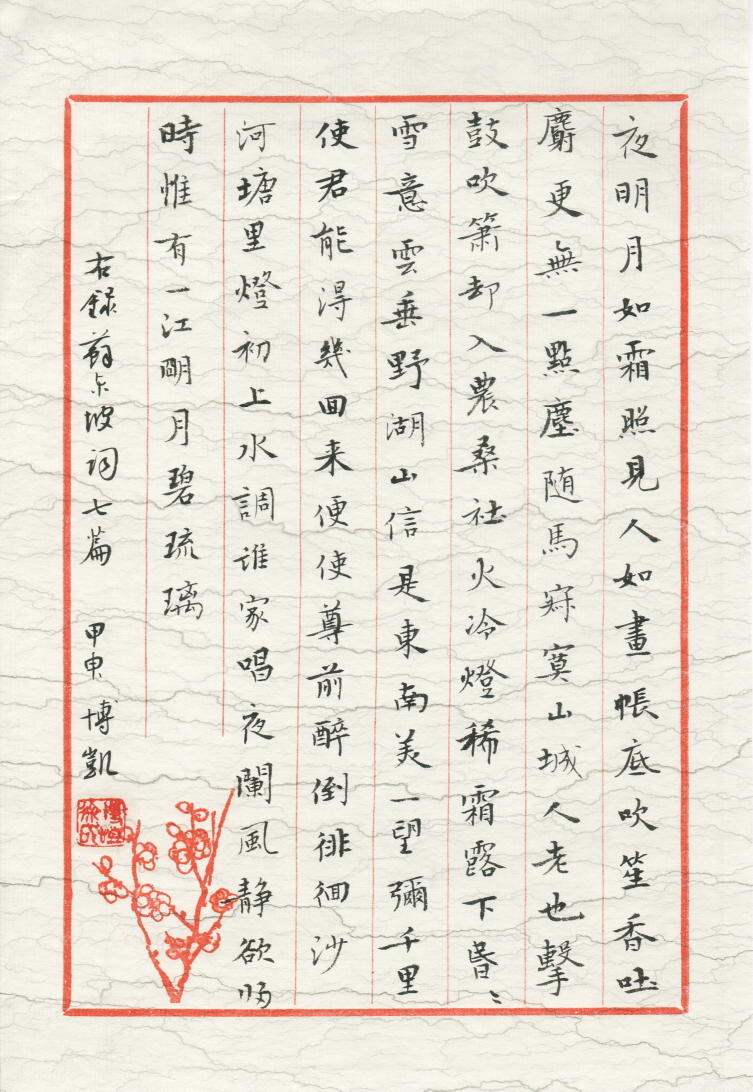 夜明月如霜照見人如畫帳底吹笙香吐
麝更無一點塵随馬寂寞山城人老也擊
鼓吹簫却入農桑社火冷燈稀霜露下昏々
雪意雲垂野湖山信是東南美一望彌千里
使君能得幾回来便使尊前醉倒徘徊沙
河塘里燈初上水調誰家唱夜闌風静欲歸
時惟有一江明月碧琉璃
右録蘇东坡词七篇 甲申 博凱